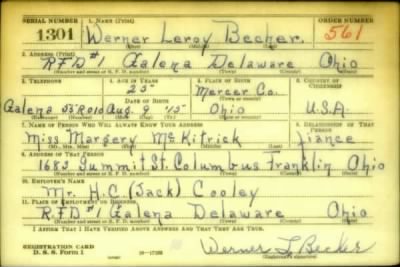 SERIAL NUMBER 1. NAME (Print) ORDER NUMBER
1301 Werner Leroy Becker. 561
(First) (Middle) (Last)
2. ADDRESS (Print)
R.F.D #1 Galena Delaware Ohio
(Number and street or R. F. D. number) (Town) (County) (State)
3. TELEPHONE 4. AGE IN YEARS 5. PLACE OF BIRTH 6. COUNTRY OF CITIZENSHIP
25 Mercer Co.
DATE OF BIRTH (Town or county)
Galena 53 R010 Aug 9 '15 Ohio U.S.A
(Exchange) (Number) (Mo.) (Day) (Yr.) (State or country)
7. NAME OF PERSON WHO WILL ALWAYS KNOW YOUR ADDRESS 8. RELATIONSHIP OF THAT PERSON
Miss Margery Mc Kitrick fiance
(Mr., Mrs., Miss) (First) (Middle) (Last)
9. ADDRESS OF THAT PERSON
1683 Summit St. Columbus Franklin Ohio
(Number and street or R. F. D. number) (Town) (County) (State)
10. EMPLOYER'S NAME
Mr. H.C. (Jack) Cooley
11. PLACE OF EMPLOYMENT OR BUSINESS
R.F.D #1 Galena Delaware Ohio
(Number and street or R. F. D. number) (Town) (County) (State)
I AFFIRM THAT I HAVE VERIFIED ABOVE ANSWERS AND THAT THEY ARE TRUE.
REGISTRATION CARD
D. S. S. Form 1 Werner L Becker
(Registrant's signature)